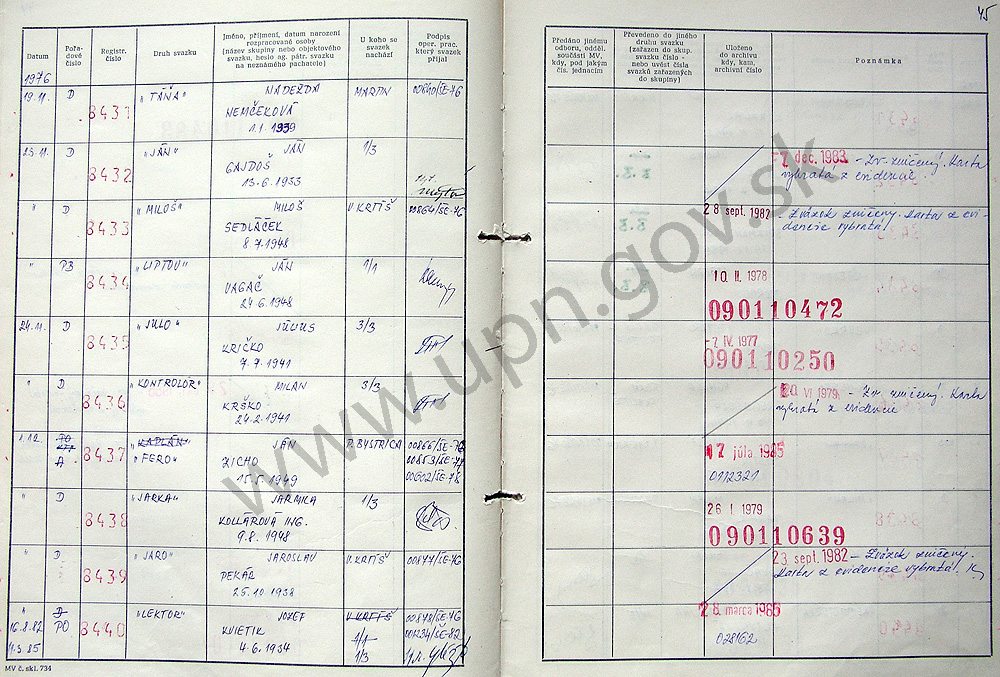 45
Datum
Pořadové číslo
Registr. číslo
Druh svazku
Jméno, příjmení, datum narození
rozpracované osoby
(název skupiny nebo objektového
svazku, heslo ag. pátr. svazku
na neznámého pachatele)
U koho se
svazek
nachází
Podpis
oper. prac.
který svazek
přijal
Předáno jinému
odboru, odděl.
součásti MV
kdy, pod jakým
čís. jednacím
Převedeno do jiného
druhu svazku
(zařazen do skup.
svazku číslo -
nebo uvést čísla
svazků zařazených
do skupiny)
Uloženo
do archivu
kdy, kam,
archivní číslo
Poznámka
1976
19.11. D 8431 "TÁŇA" NADEŽDA MARTIN 00840/ŠE-76
NEMČEKOVÁ
1.1.1939
23.11. D 8432 "JÁN" JÁN 1/3
GAJDOŠ
13.6.1933
-7. dec. 1983 - Zv. zničený. Karta
vybratá z evidencie.
" D 8433 "MILOŠ" MILOŠ V.KRTÍŠ 00864/ŠE-76
SEDLÁČEK
8.7.1948
28 sept. 1982 - Zväzok zničený. Karta z evi-
dencie vybratá!
" PB 8434 "LIPTOV" JÁN 1/1
VAGAČ
24.6.1948
10. II. 1978
090110472
24.11. D 8435 "JULO" JÚLIUS 3/3
KRIČKO
7.7.1941
-7. IV. 1977
090110250
" D 8436 "KONTROLÓR" MILAN 3/3
KRŠKO
24.2.1941
VI 1979 - Zv. zničený. Karta
vybratá z evidencie
1.12. A 8437 "KAPLÁN" JÁN P.BYSTRICA 00866/ŠE-76
"FERO" ZICHO 00853/ŠE-77
15.5.1949 00602/ŠE-78
17 júla 1985
0112321
" D 8438 "JARKA" JARMILA 1/3
KOLLÁROVÁ ING.
9.8.1948
26 I 1979
090110639
" D 8439 "JARO" JAROSLAV V.KRTÍŠ 00877/ŠE-76
PEKÁR
25.10.1938
23. sept. 1982 - Zväzok zničený.
Karta z evidencie vybratá.
" D 8440 "LEKTOR" JOZEF V.KRTÍŠ 00878/ŠE-76
16.8.82 PO KVIETIK 1/1 001234/ŠE-82
4.3.85 4.6.1934 1/3
28. marca 1985
028162
MV č. skl. 734
www.upn.gov.sk